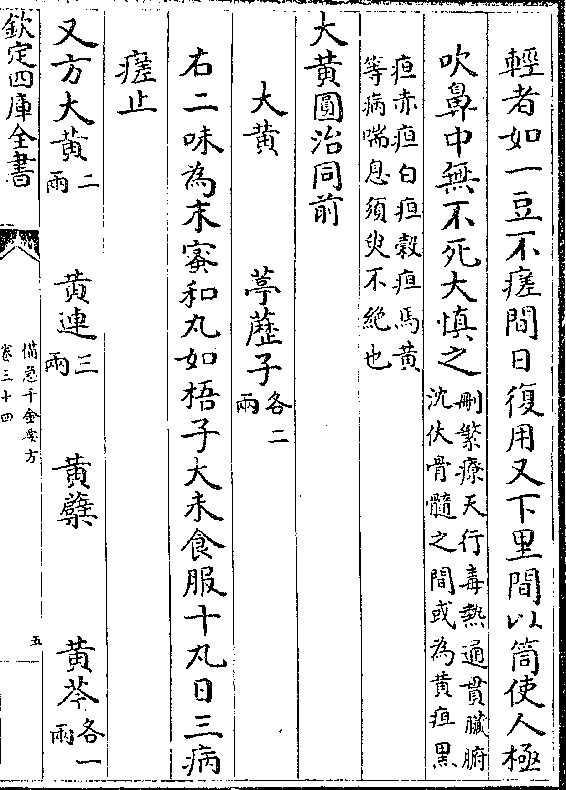 輕者如一豆不瘥間日復用又下里間以筒使人極
吹鼻中無不死大慎之刪繁療天行毒熱通貫臟腑
沈伏骨髓之間或為黄疸黒
疸赤疸白疸穀疸馬黄
等病喘息須臾不絶也
大黄圓治同前
大黄 葶藶子各二兩
右二味為末蜜和丸如梧子大未食服十丸日三病
瘥止
又方大黄二兩 黄連三兩 黄蘗 黄芩各一兩
欽定四庫全書
備急千金要方
卷三十四
五